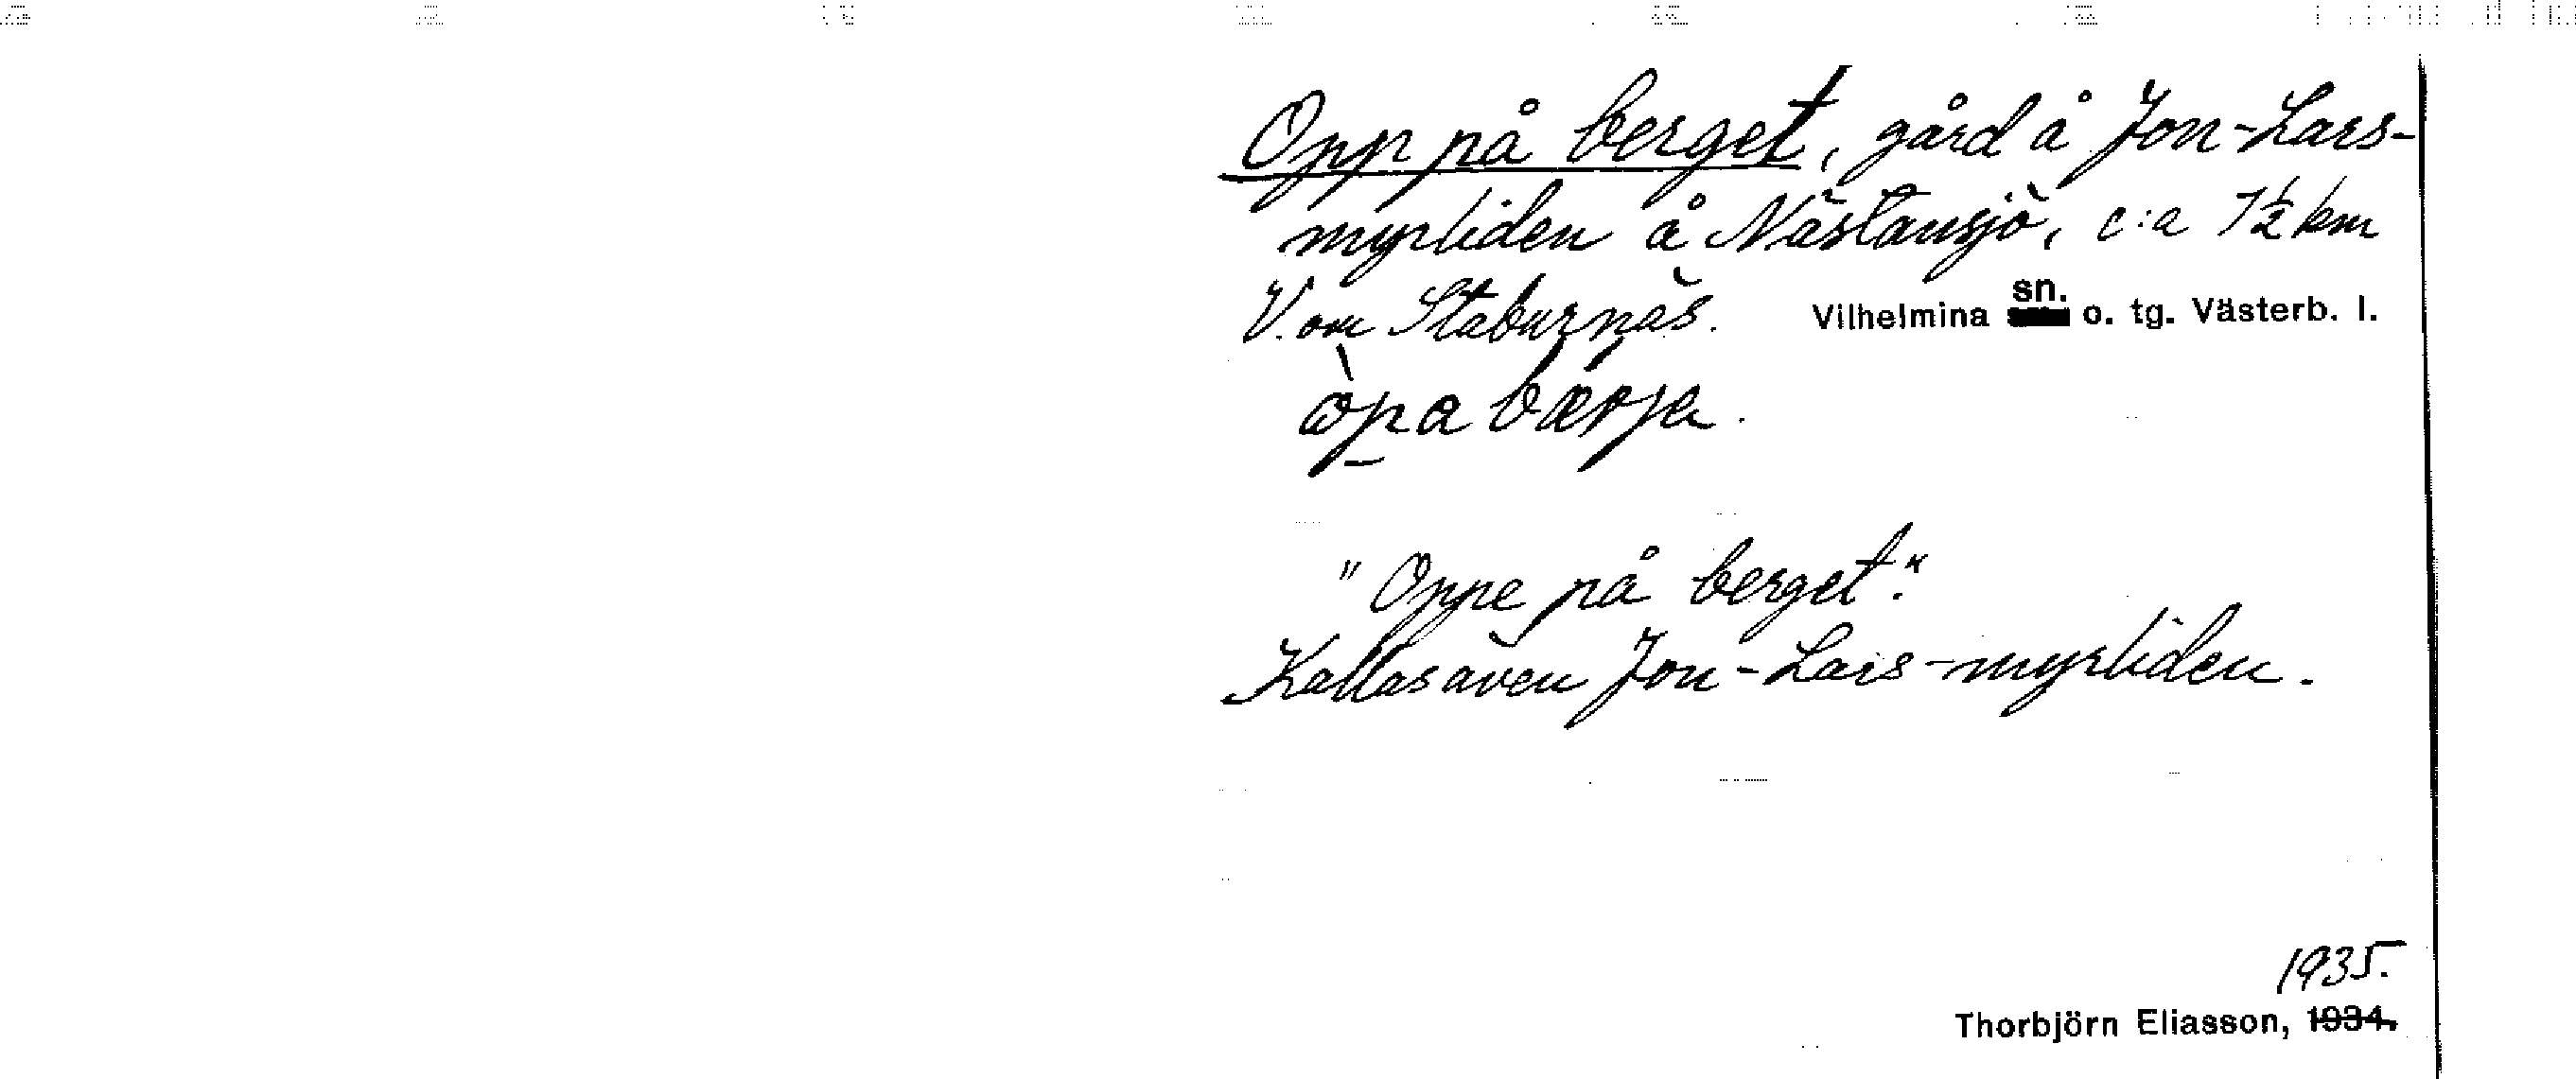 Opp på berget, gård å Jon-Lars-
myrliden å Nästansjö, c:a 1½ km
V. om Staburnäs. Vilhelmina sn. o. tg. Västerb. l.
"Oppe på berget".
Kallas även Jon-Lars-myrliden.
1935.
Thorbjörn Eliasson, 1934.